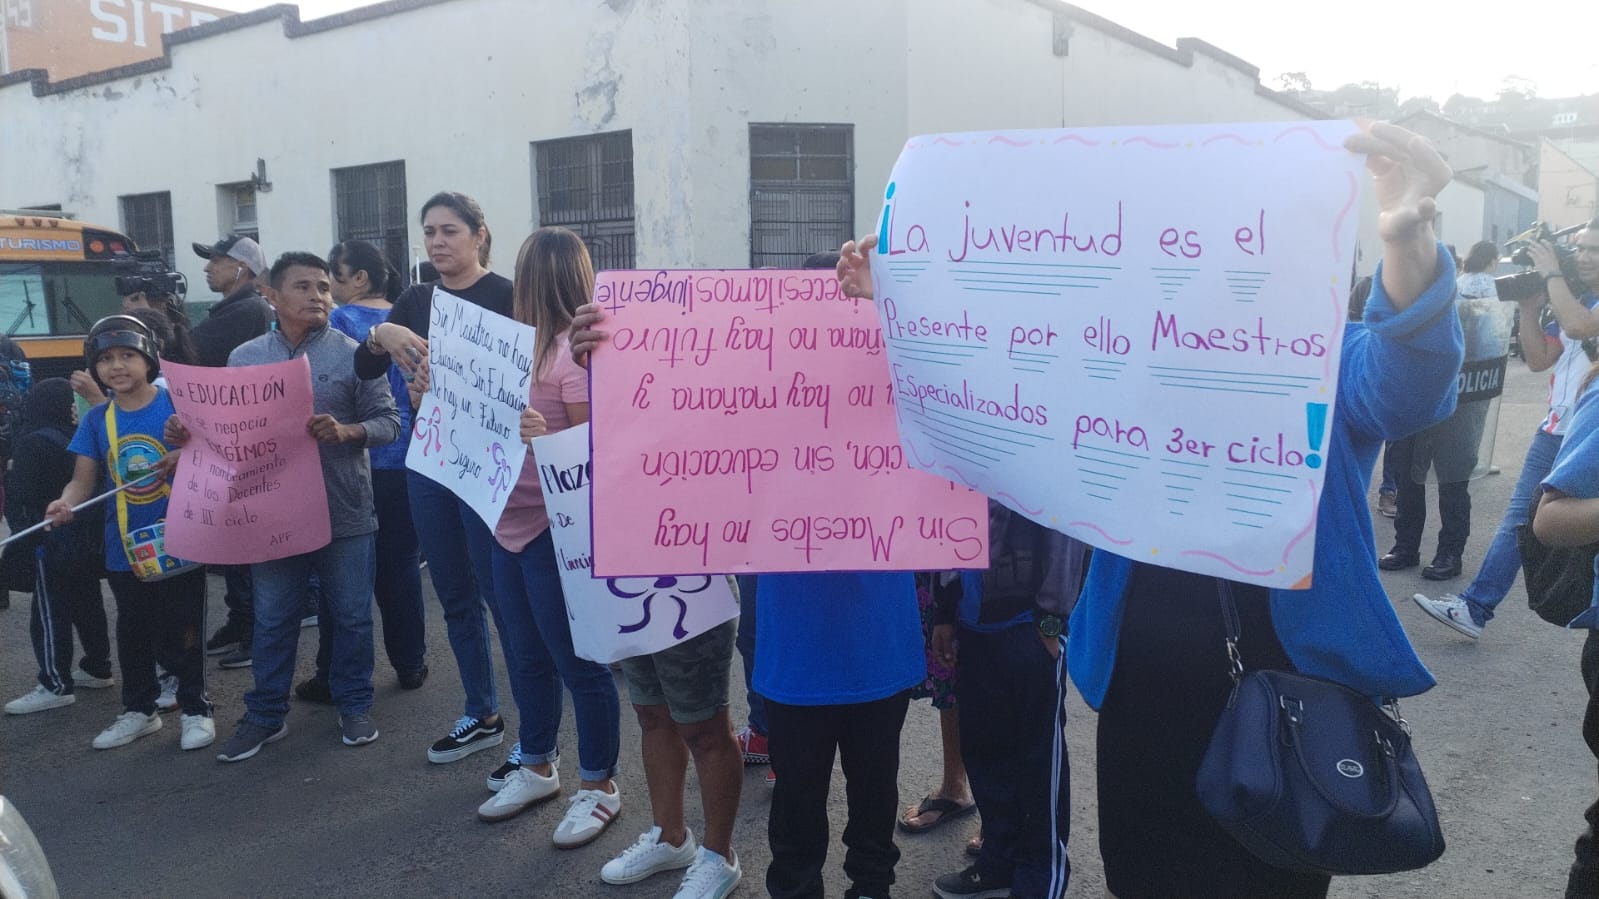 SIT
TURISMO
La EDUCACIÓN
se negocia
EXIGIMOS
El nombramiento
de los Docentes
de III ciclo
APF
Sin Maestros no hay
Educacion, Sin Educacion
No hay un Futuro
Seguro
Plaza
De
Sin Maestros no hay
ción, sin educación
y no hay mañana y
ñana no hay futuro
¡necesitamos! ¡urgente!
¡La juventud es el
Presente por ello Maestros
Especializados para 3er ciclo!
POLICIA